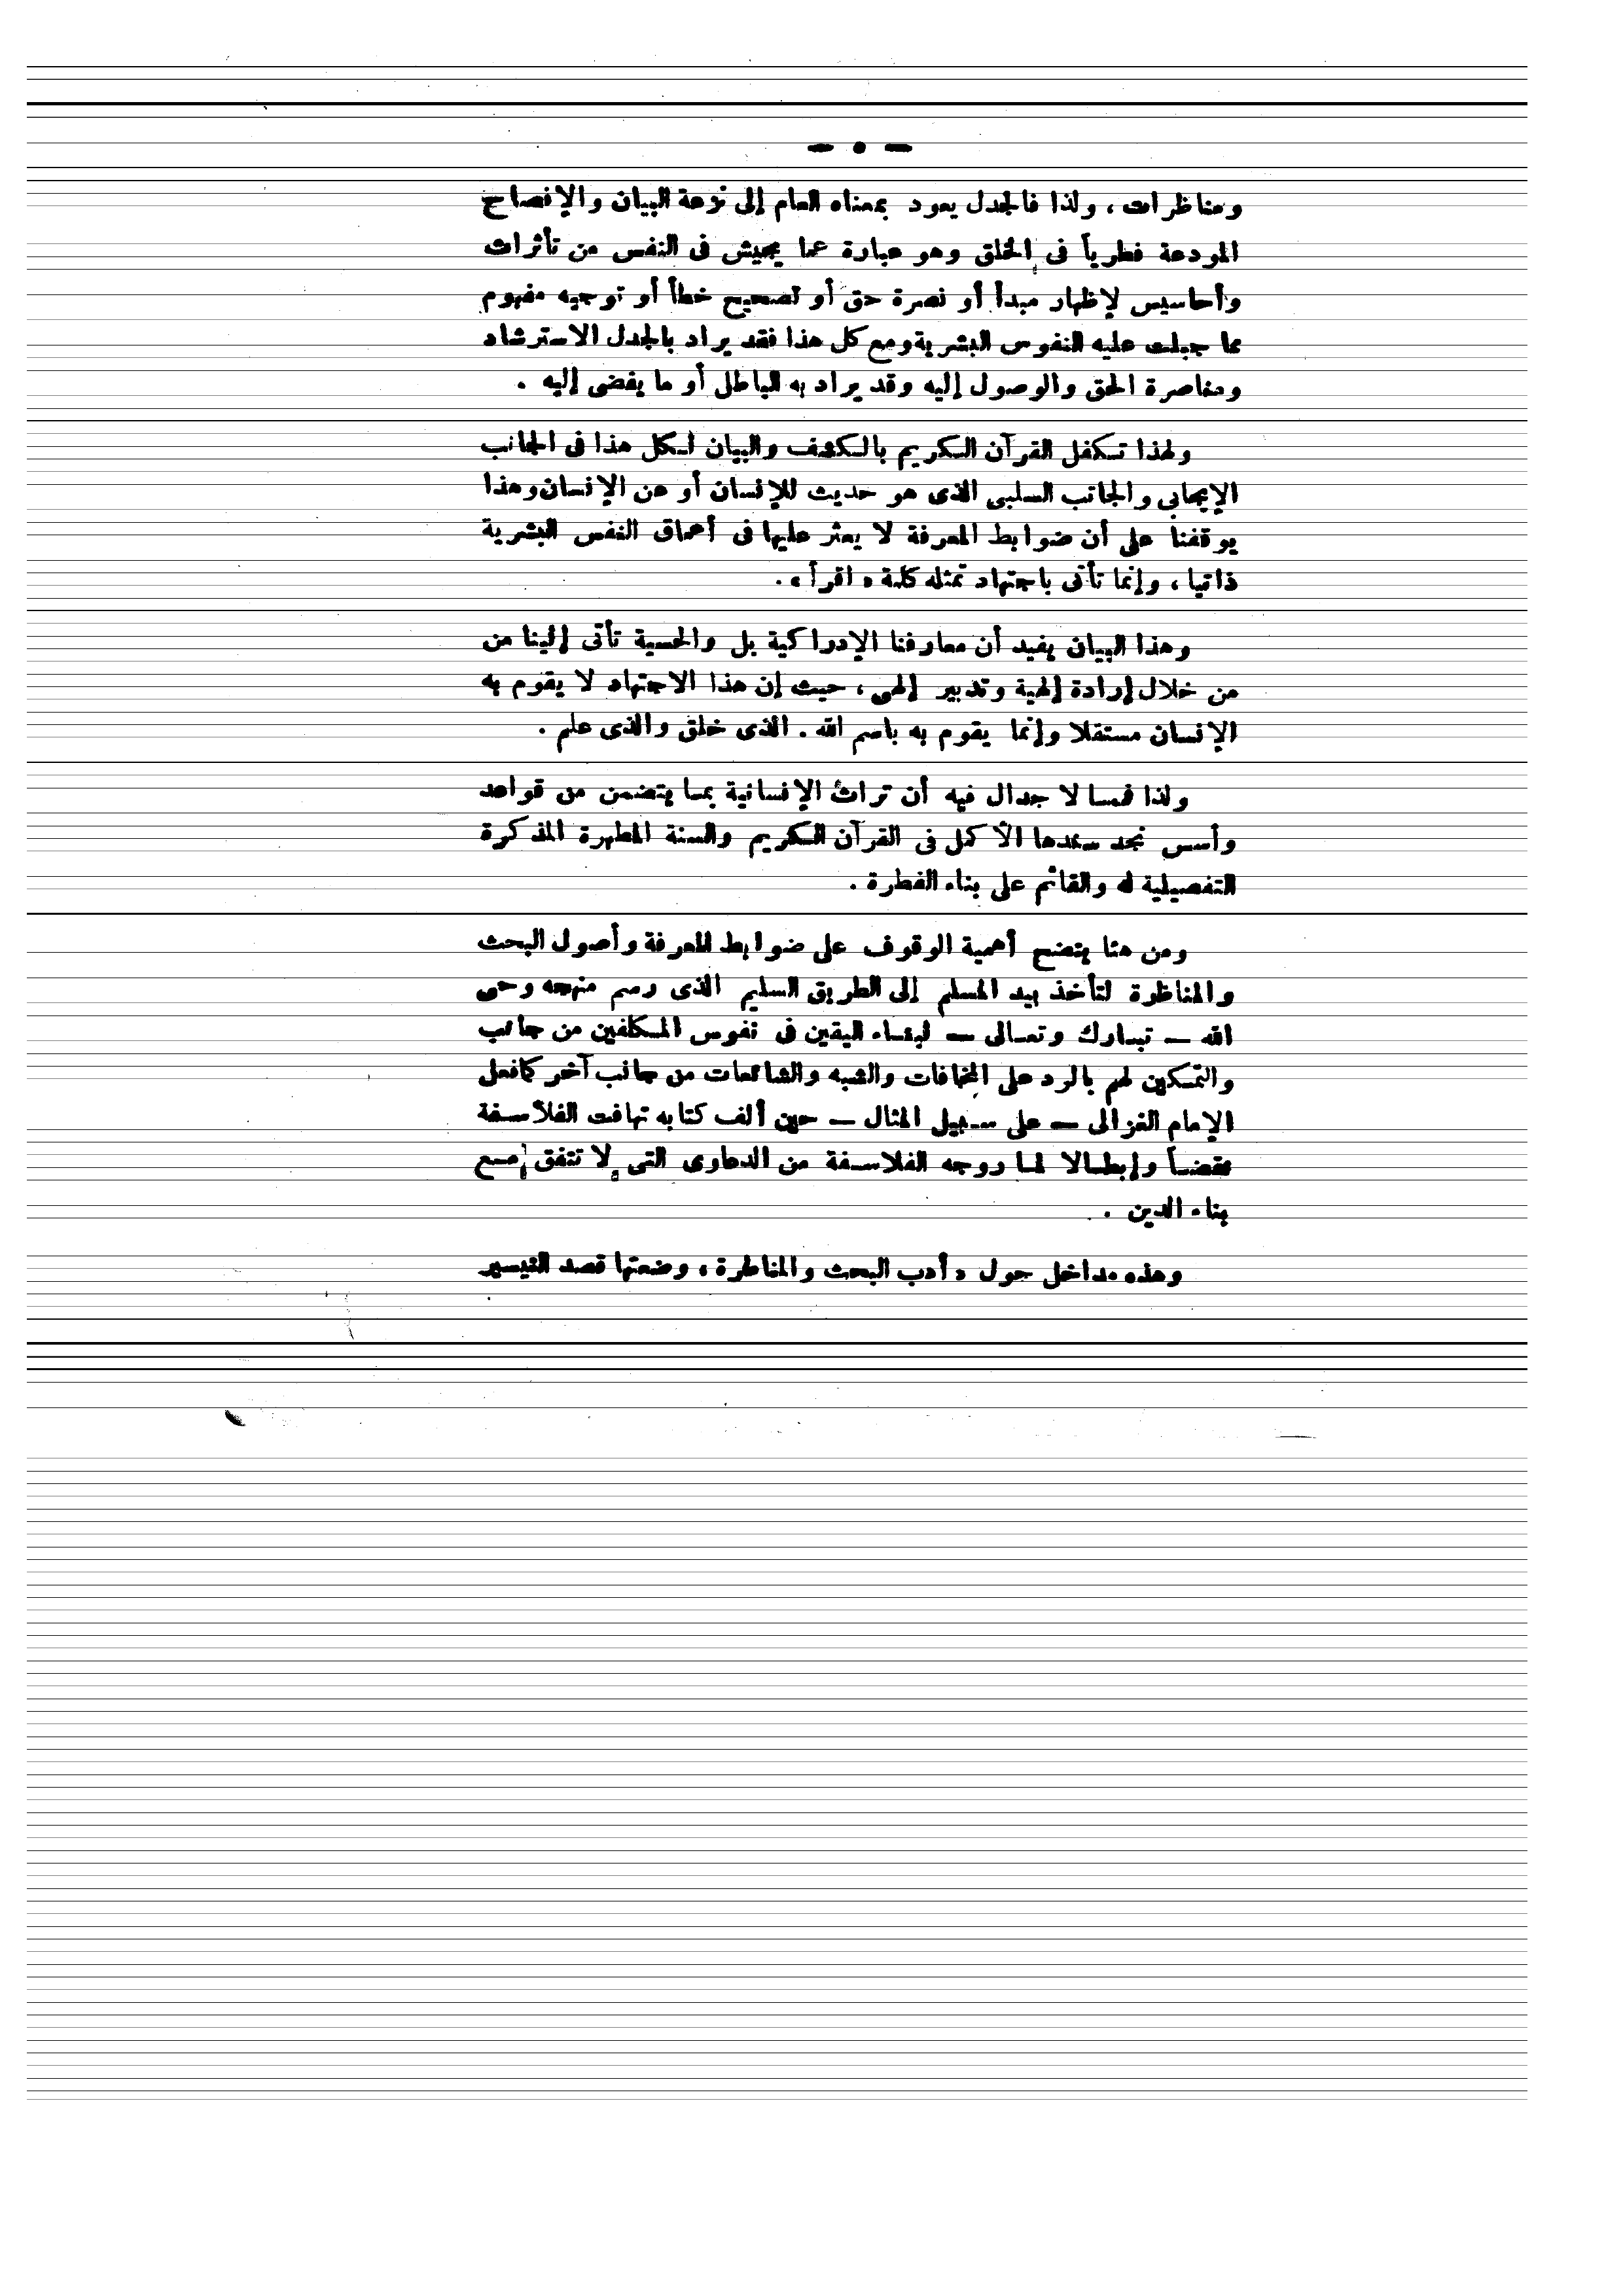 — ٥ —
ومناظرات ، ولذا فالجدل يعود بمعناه العام إلى نزعة البيان والإفصاح
المودعة فطرياً فى الخلق وهو عبارة عما يجيش فى النفس من تأثرات
وأحاسيس لإظهار مبدأ أو نصرة حق أو تصحيح خطأ أو توجيه مفهوم
مما جبلت عليه النفوس البشرية ومع كل هذا فقد يراد بالجدل الاسترشاد
ومناصرة الحق والوصول إليه وقد يراد به الباطل أو ما يفضى إليه .
ولهذا تكفل القرآن الكريم بالكشف والبيان لكل هذا فى الجانب
الإيجابى والجانب السلبى الذى هو حديث للإنسان أو عن الإنسان وهذا
يوقفنا على أن ضوابط المعرفة لا يعثر عليها فى أعماق النفس البشرية
ذاتيا ، وإنما تأتى باجتهاد تمثله كلمة « اقرأ » .
وهذا البيان يفيد أن معارفنا الإدراكية بل والحسية تأتى إلينا من
من خلال إرادة إلهية وتدبير إلهى ، حيث إن هذا الاجتهاد لا يقوم به
الإنسان مستقلا وإنما يقوم به باسم الله . الذى خلق والذى علم .
ولذا فمما لا جدال فيه أن تراث الإنسانية بما يتضمن من قواعد
وأسس نجد سندها الأكمل فى القرآن الكريم والسنة المطهرة المذكرة
التفصيلية له والقائم على بناء الفطرة .
ومن هنا يتضح أهمية الوقوف على ضوابط المعرفة وأصول البحث
والمناظرة لتأخذ بيد المسلم إلى الطريق السليم الذى رسم منهجه وحى
الله — تبارك وتعالى — لبناء اليقين فى نفوس المكلفين من جانب
والتمكين لهم بالرد على المخافات والشبه والشائعات من جانب آخر كما فعل
الإمام الغزالى — على سبيل المثال — حين ألف كتابه تهافت الفلاسفة
نقضاً وإبطالا لما روجه الفلاسفة من الدعاوى التى لا تتفق مع
بناء الدين .
وهذه مداخل حول « أدب البحث والمناظرة ، وضعتها قصد التيسير